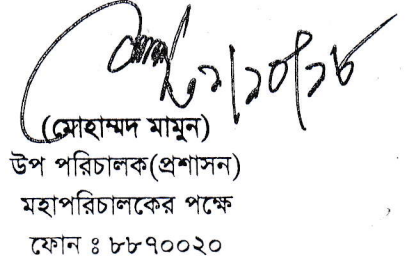 ২১/১০/১৮
(মোহাম্মদ মামুন)
উপ পরিচালক(প্রশাসন)
মহাপরিচালকের পক্ষে
ফোন ঃ ৮৮৭০০২০